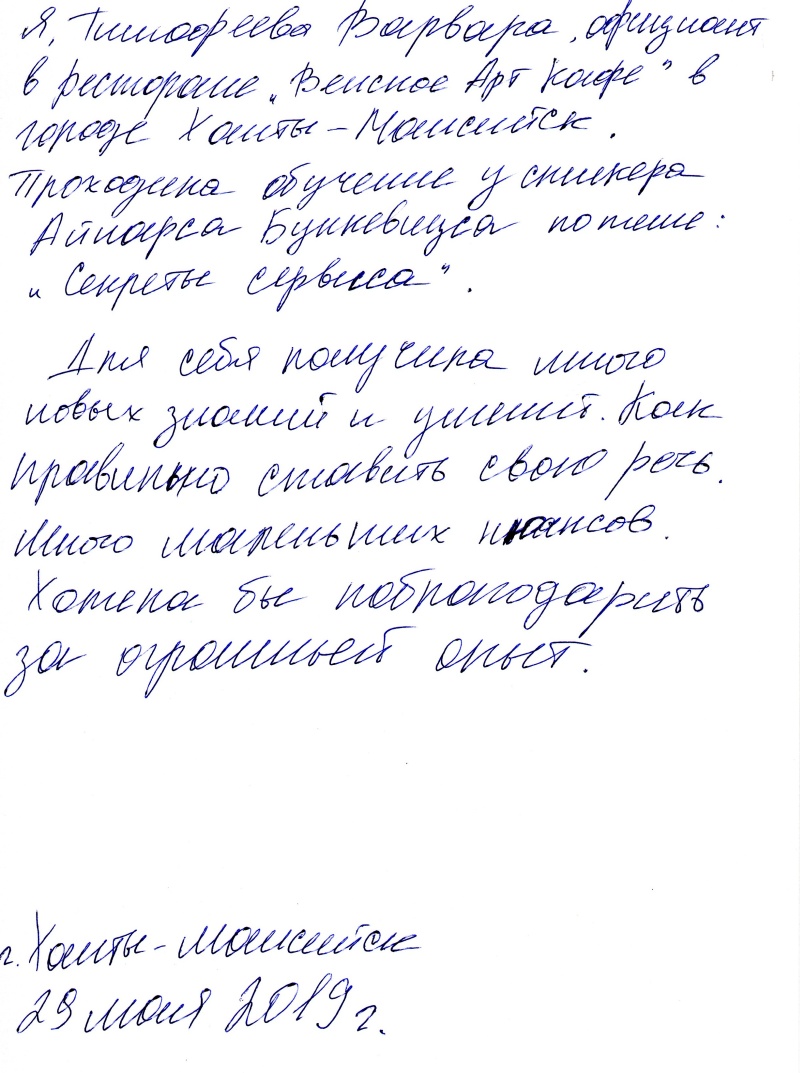 Я, Тимофеева Варвара, официант
в ресторане „Венское Арт Кафе" в
городе Ханты-Мансийск.
Проходила обучение у спикера
Айнарса Бункевицса по теме:
„Секреты сервиса".
Для себя получила много
новых знаний и умений. Как
правильно ставить свою речь.
Много маленьких нюансов.
Хотела бы поблагодарить
за огромный опыт.
г. Ханты-Мансийск
29 мая 2019 г.